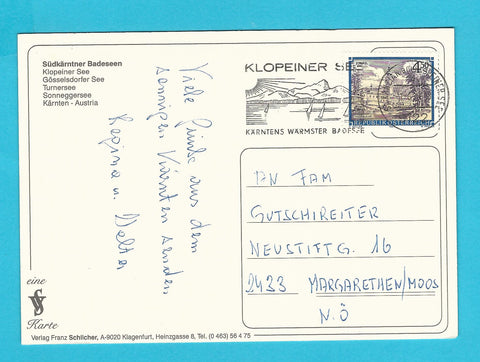 Südkärntner Badeseen
Klopeiner See
Gösselsdorfer See
Turnersee
Sonneggersee
Kärnten - Austria
Viele Grüße aus dem
sonnigen Kärnten senden
Regina u. Walter
KLOPEINER SEE
KÄRNTENS WÄRMSTER BADESEE
REPUBLIK ÖSTERREICH
AN FAM
GUTSCHIREITER
NEUSTIFTG. 16
2433 MARGARETHEN/MOOS
N.Ö
eine
VS
Karte
Verlag Franz Schlicher, A-9020 Klagenfurt, Heinzgasse 8, Tel. (0 463) 56 4 75